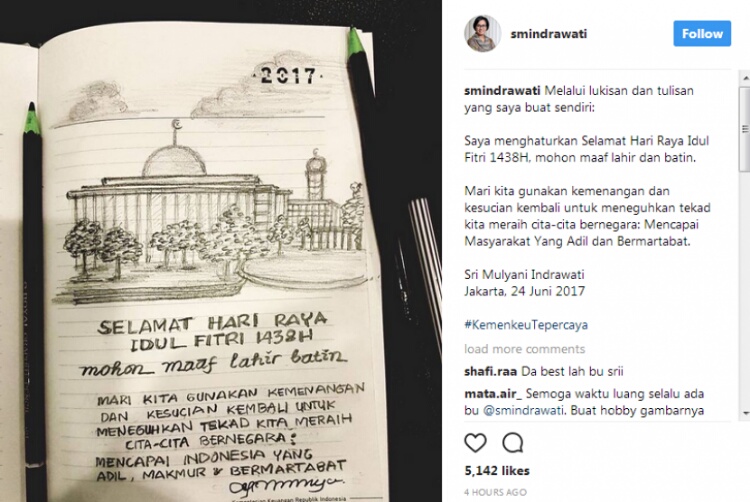 2017
SELAMAT HARI RAYA
IDUL FITRI 1438H
mohon maaf lahir batin
MARI KITA GUNAKAN KEMENANGAN
DAN KESUCIAN KEMBALI UNTUK
MENEGUHKAN TEKAD KITA MERAIH
CITA-CITA BERNEGARA:
MENCAPAI INDONESIA YANG
ADIL, MAKMUR & BERMARTABAT
Kementerian Keuangan Republik Indonesia
smindrawati
Follow
smindrawati Melalui lukisan dan tulisan
yang saya buat sendiri:
Saya menghaturkan Selamat Hari Raya Idul
Fitri 1438H, mohon maaf lahir dan batin.
Mari kita gunakan kemenangan dan
kesucian kembali untuk meneguhkan tekad
kita meraih cita-cita bernegara: Mencapai
Masyarakat Yang Adil dan Bermartabat.
Sri Mulyani Indrawati
Jakarta, 24 Juni 2017
#KemenkeuTepercaya
load more comments
shafi.raa Da best lah bu srii
mata.air_ Semoga waktu luang selalu ada
bu @smindrawati. Buat hobby gambarnya
5,142 likes
4 HOURS AGO